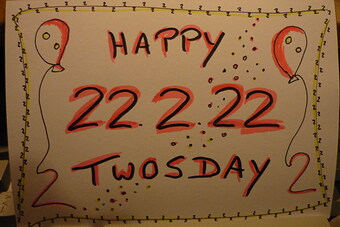 HAPPY
22.2.22
TWOSDAY
2 2